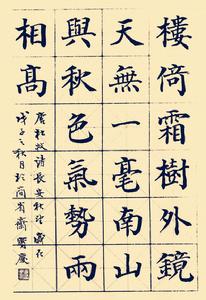 樓倚霜樹外鏡
天無一毫南山
與秋色氣勢兩
相髙
唐杜牧詩長安秋望歲在
戊子之秋月於省齋慶